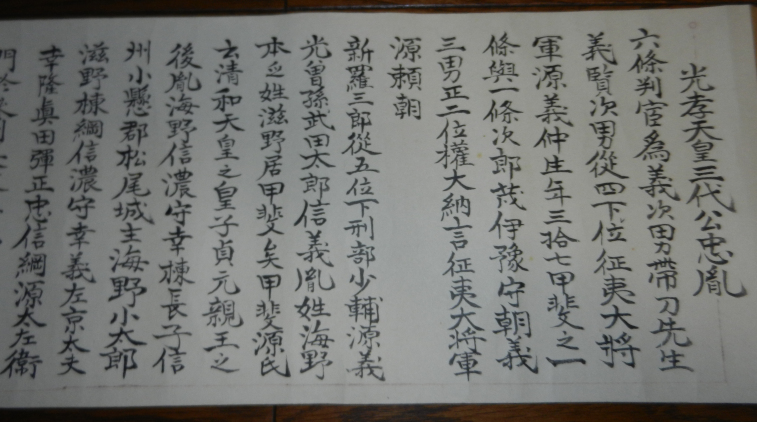 光孝天皇三代公忠胤
六條判官為義次男帶刀先生
義賢次男從四下位征夷大將
軍源義仲生年三拾七甲斐之一
條與一條次郎茂伊豫守朝義
三男正二位權大納言征夷大將軍
源頼朝
新羅三郎從五位下刑部少輔源義
光曽孫武田太郎信義胤姓海野
本之姓滋野居甲斐矣甲斐源氏
去清和天皇之皇子貞元親王之
後胤海野信濃守幸棟長子信
州小懸郡松尾城主海野小太郎
滋野棟綱信濃守幸義左京太夫
幸隆眞田彈正忠信綱源太左衛
門